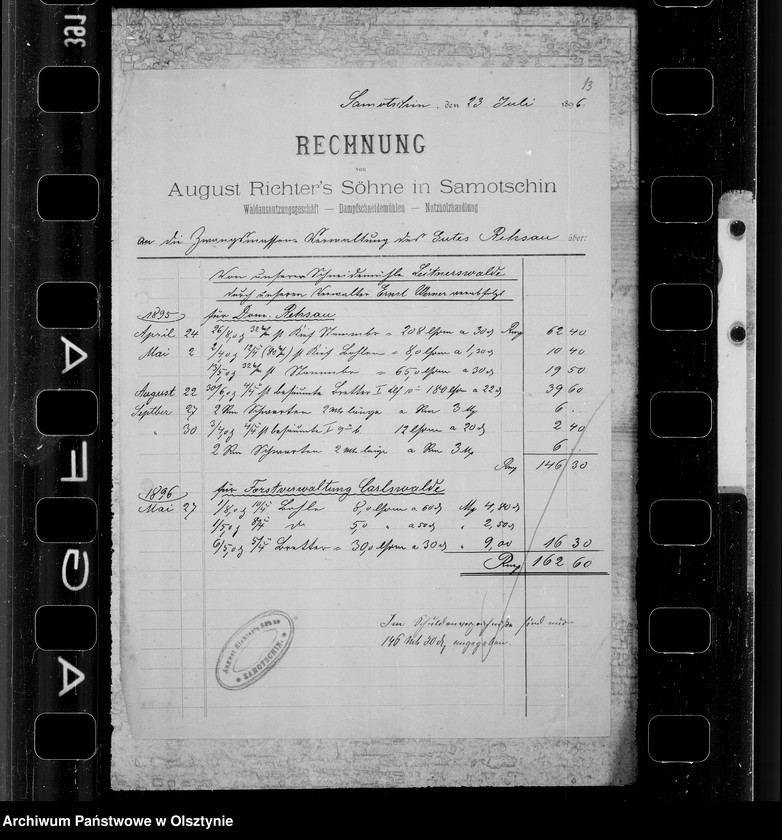 13
Samotschin, den 23 Juli 1896.
RECHNUNG
von
August Richter's Söhne in Samotschin
Waldausnutzungsgeschäft — Dampfschneidemühlen — Nutzholzhandlung
an die Zwangsmassen Verwaltung des Gutes Rehsau über:
Von unserer Schneidemühle Leitnerswalde
durch unseren Verwalter Ernst Werner verabfolgt
1895 für Dom. Rehsau
April 24 26/8,0 St Kief = 208 a 30 Rm 62 40
Mai 2 2/4,0 St Kief Bohlen = 8,0 a 1,30 10 40
13/5,0 St = 65,0 a 30 19 50
August 22 30/6,0 4/4" St besäumte Bretter = 180 a 22 39 60
Septber 27 2 Rm Schwarten 2 lange a Rm 3 6 .
" 30 3/4,0 4/4" St besäumte I 12 a 20 2 40
2 Rm Schwarten 2 lange a Rm 3 6 .
146 30
1896 für Forstverwaltung Carlswalde
Mai 27 1/8,0 Bohle 8,0 a 60 4,80
1/5,0 8/4 do 5,0 " a 50 " 2,50
6/5,0 5/4 Bretter = 30,0 a 30 " 9,00 16 30
162 60
Im Schuldenverzeichnisse sind nur
146 Mk 30 angegeben.
August Richter's Söhne
* SAMOTSCHIN. *
391
AFGA
Archiwum Państwowe w Olsztynie